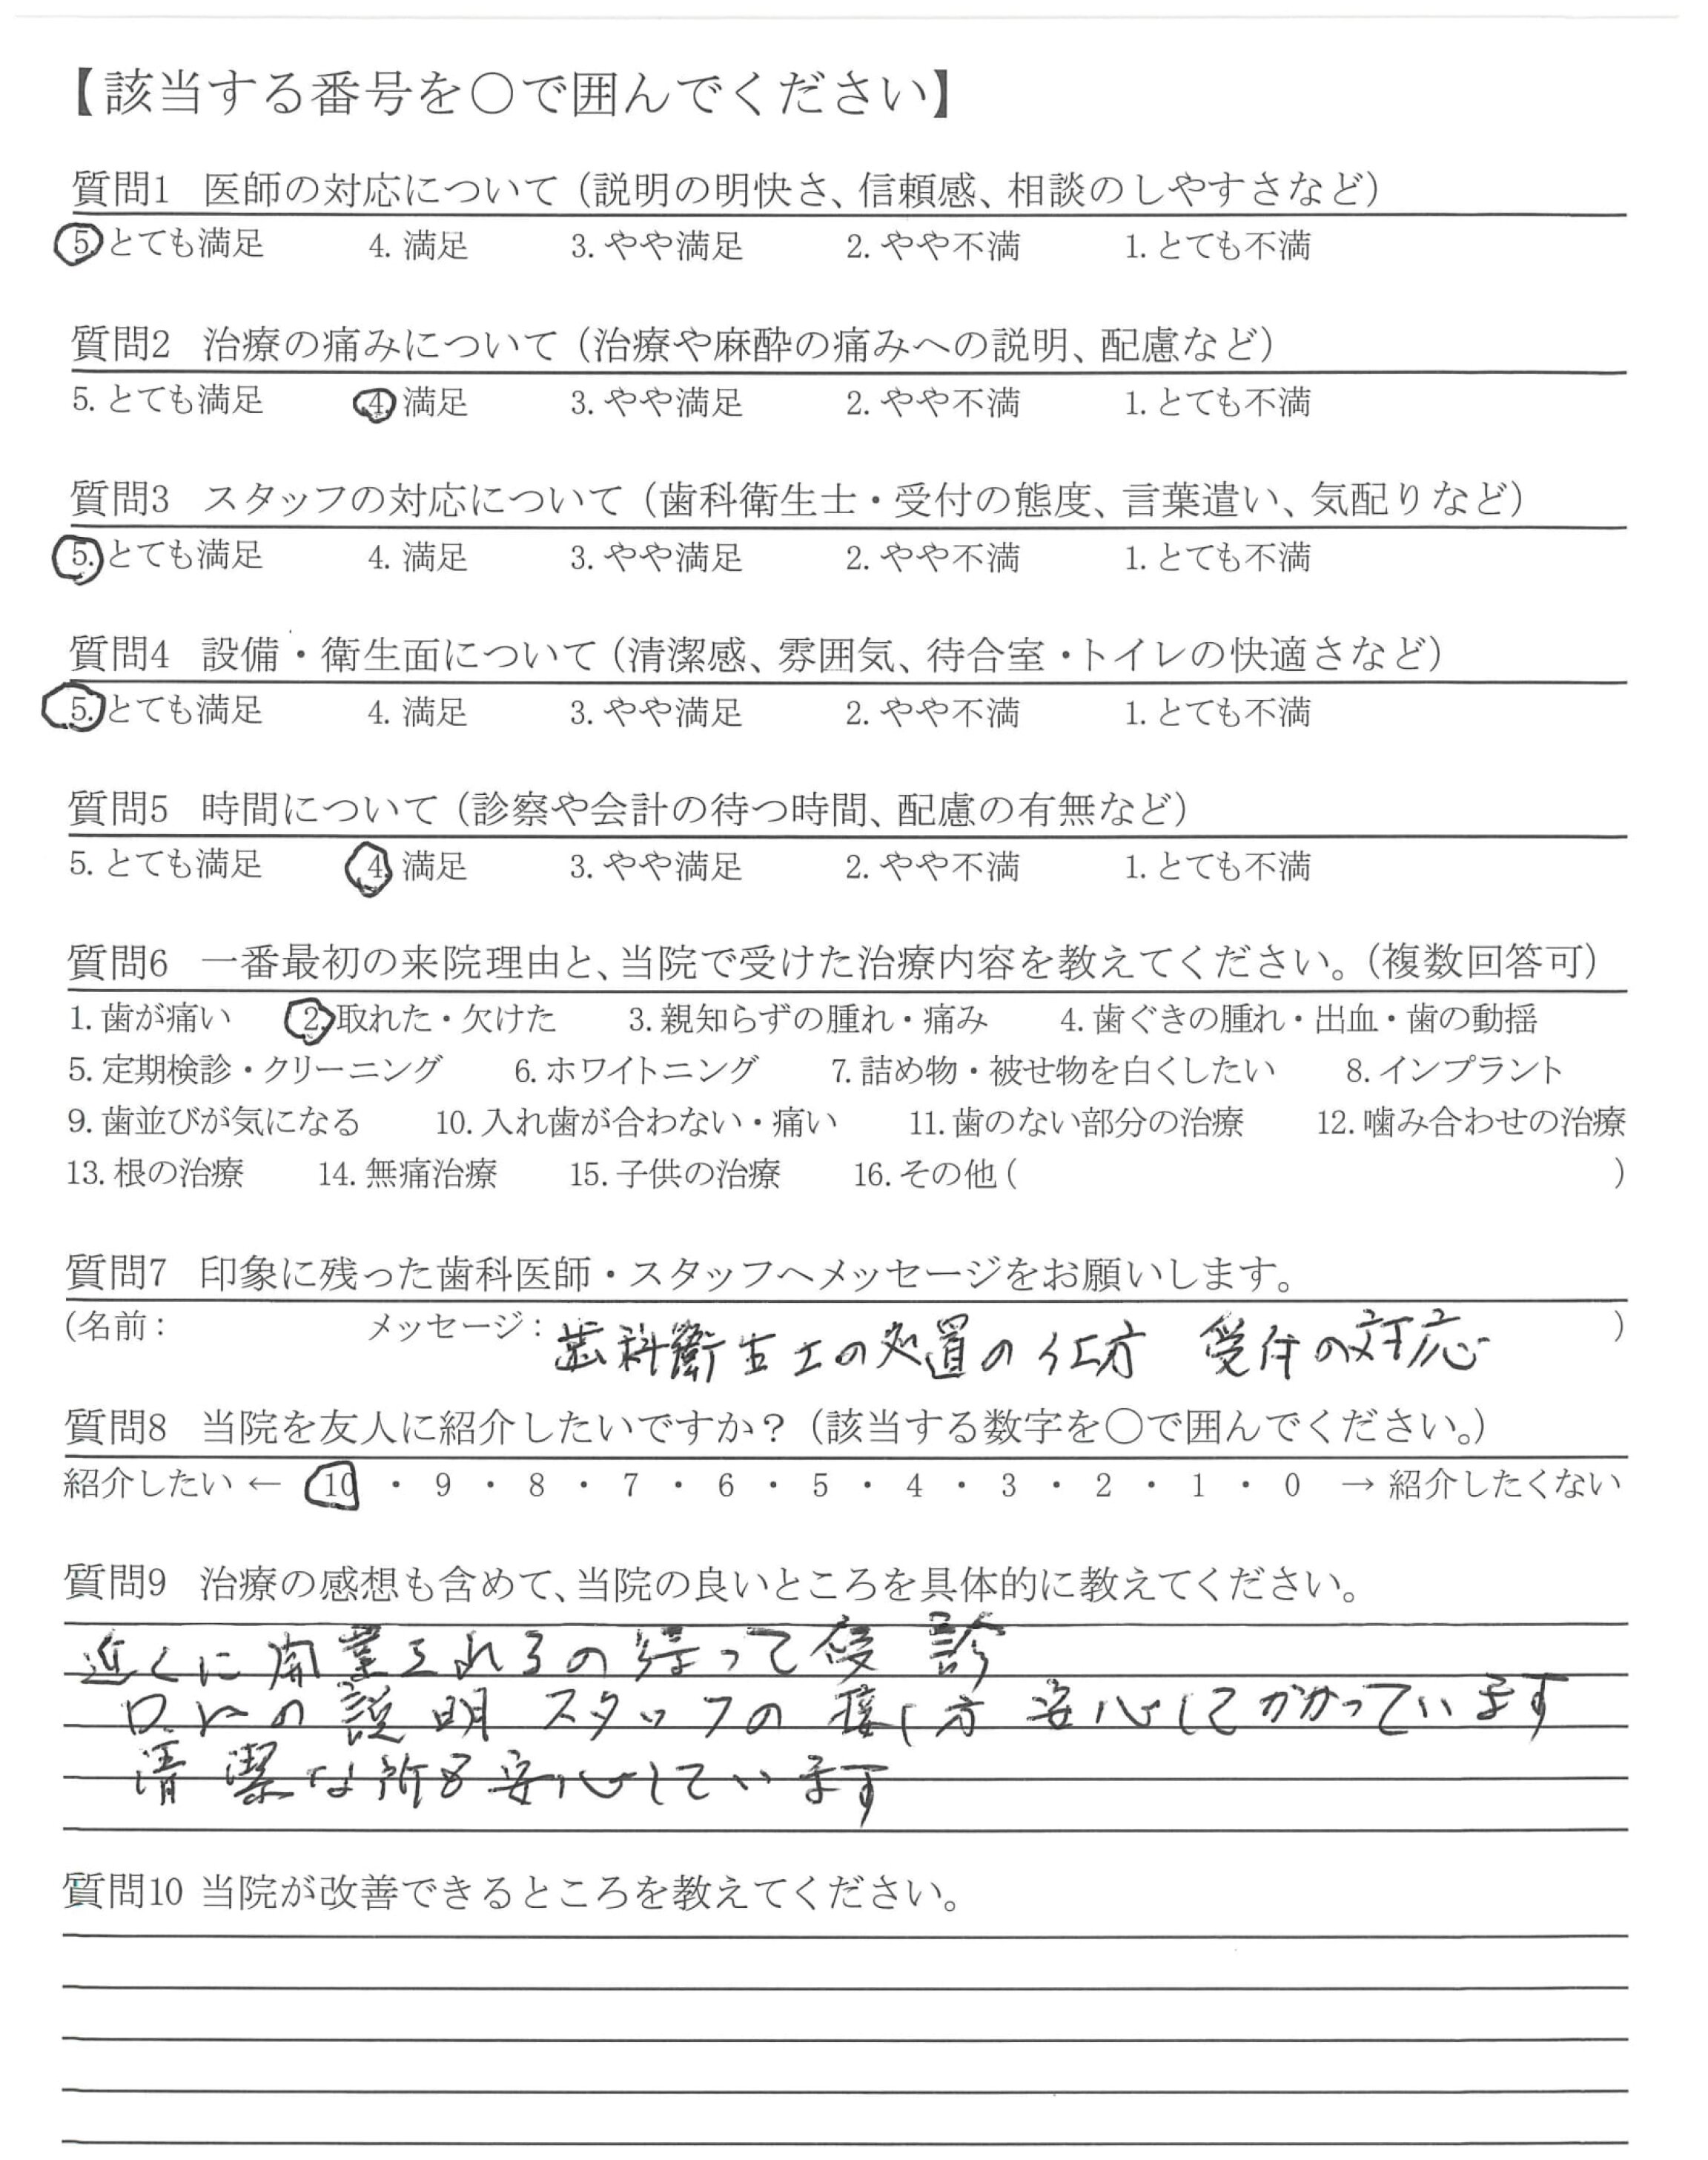 【該当する番号を○で囲んでください】
質問1 医師の対応について（説明の明快さ、信頼感、相談のしやすさなど）
5. とても満足 4. 満足 3. やや満足 2. やや不満 1. とても不満
質問2 治療の痛みについて（治療や麻酔の痛みへの説明、配慮など）
5. とても満足 4. 満足 3. やや満足 2. やや不満 1. とても不満
質問3 スタッフの対応について（歯科衛生士・受付の態度、言葉遣い、気配りなど）
5. とても満足 4. 満足 3. やや満足 2. やや不満 1. とても不満
質問4 設備・衛生面について（清潔感、雰囲気、待合室・トイレの快適さなど）
5. とても満足 4. 満足 3. やや満足 2. やや不満 1. とても不満
質問5 時間について（診察や会計の待つ時間、配慮の有無など）
5. とても満足 4. 満足 3. やや満足 2. やや不満 1. とても不満
質問6 一番最初の来院理由と、当院で受けた治療内容を教えてください。（複数回答可）
1. 歯が痛い 2. 取れた・欠けた 3. 親知らずの腫れ・痛み 4. 歯ぐきの腫れ・出血・歯の動揺
5. 定期検診・クリーニング 6. ホワイトニング 7. 詰め物・被せ物を白くしたい 8. インプラント
9. 歯並びが気になる 10. 入れ歯が合わない・痛い 11. 歯のない部分の治療 12. 噛み合わせの治療
13. 根の治療 14. 無痛治療 15. 子供の治療 16. その他（ ）
質問7 印象に残った歯科医師・スタッフへメッセージをお願いします。
（名前： メッセージ：歯科衛生士の処置の仕方 受付の対応 ）
質問8 当院を友人に紹介したいですか？（該当する数字を○で囲んでください。）
紹介したい ← 10 ・ 9 ・ 8 ・ 7 ・ 6 ・ 5 ・ 4 ・ 3 ・ 2 ・ 1 ・ 0 → 紹介したくない
質問9 治療の感想も含めて、当院の良いところを具体的に教えてください。
近くに開業されるの待って受診
の説明 スタッフの接し方 安心してかかっています
清潔な所も安心しています
質問10 当院が改善できるところを教えてください。